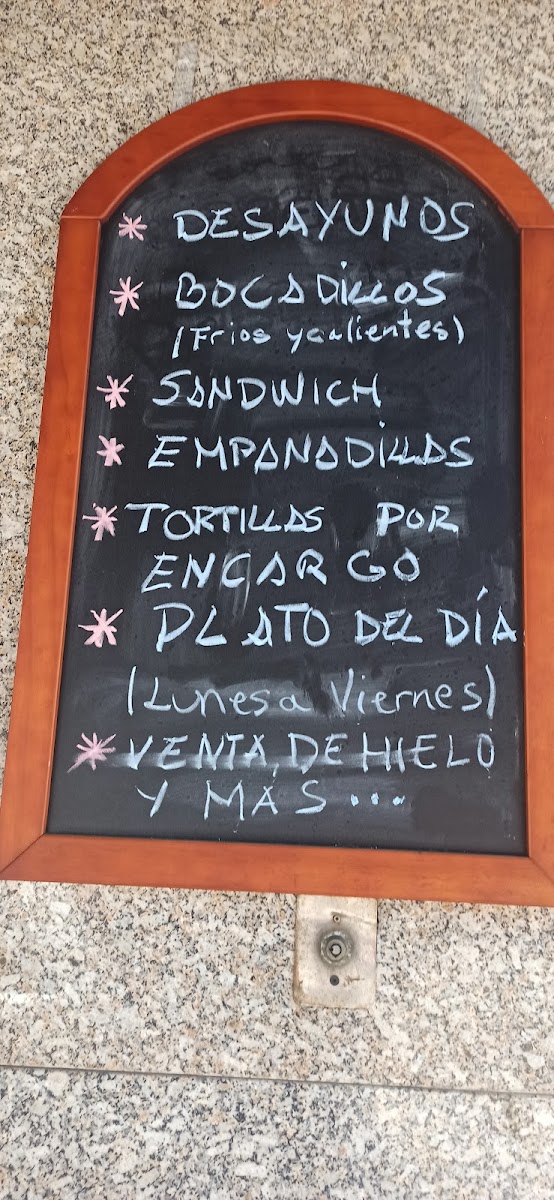 * DESAYUNOS
* BOCADiLLOS
(Frios y calientes)
* SANDWICH
* EMPANADiLLAS
* TORTILLAS POR
ENCARGO
* PLATO DEL DÍA
(Lunes a Viernes)
* VENTA DE HIELO
Y MÁS ...